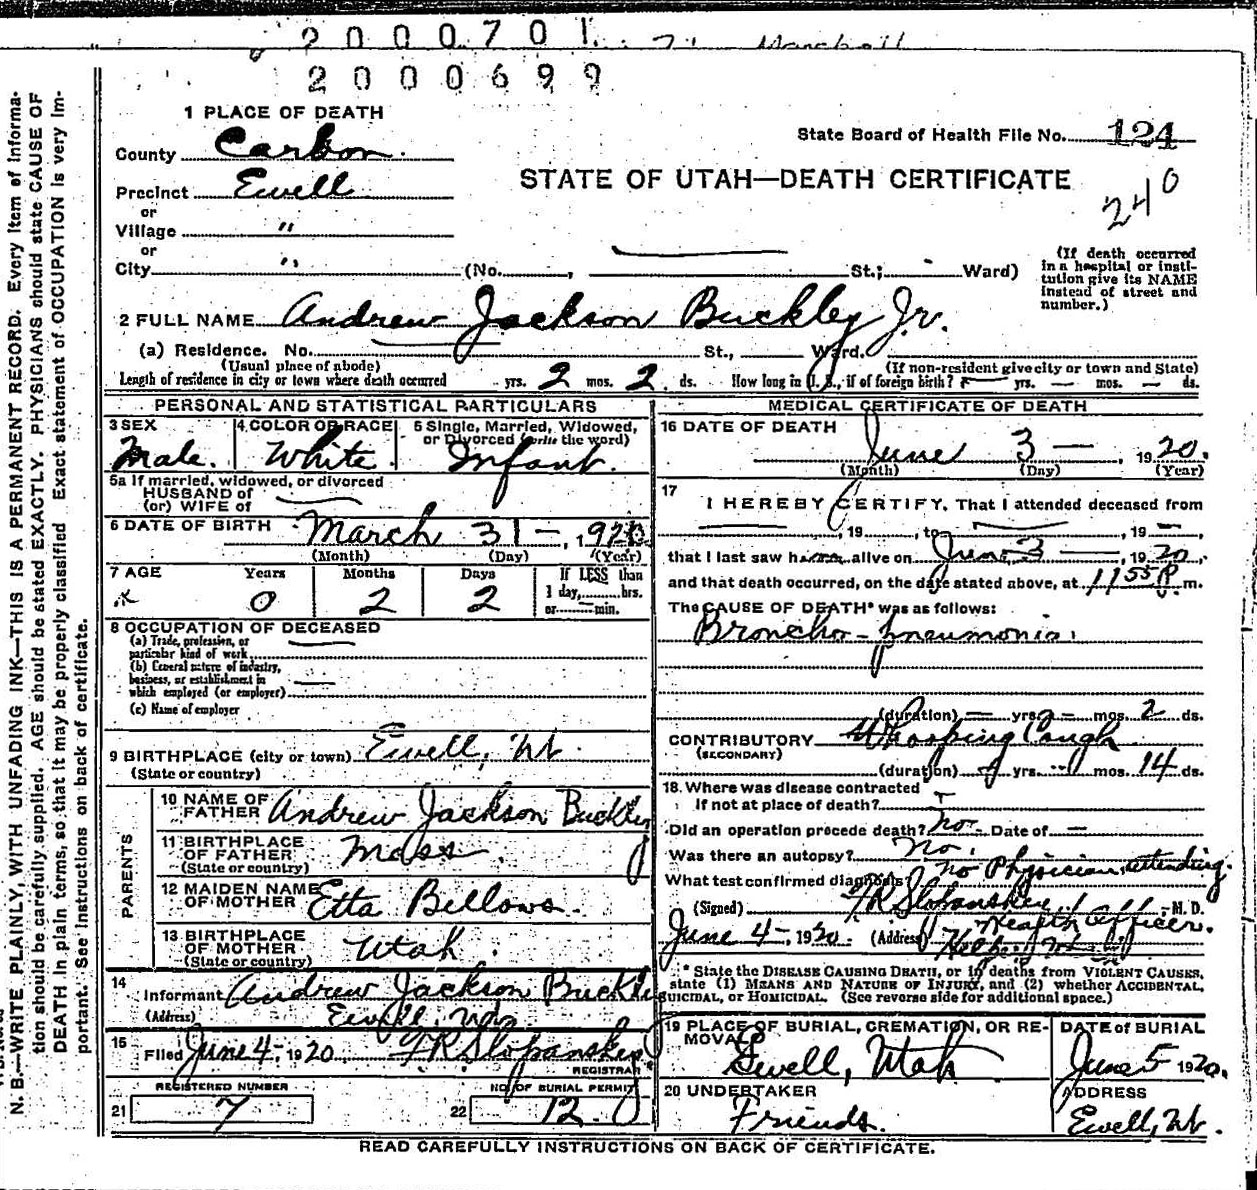 2000701
2000699
1 PLACE OF DEATH
State Board of Health File No. 124
County Carbon.
STATE OF UTAH—DEATH CERTIFICATE
240
Precinct Ewell
or
Village "
or
City "
(No. , St.; Ward)
(If death occurred in a hospital or institution give its NAME instead of street and number.)
2 FULL NAME Andrew Jackson Buckley Jr.
(a) Residence. No. St., Ward.
(Usual place of abode) (If non-resident give city or town and State)
Length of residence in city or town where death occurred yrs. 2 mos. 2 ds. How long in U. S., if of foreign birth? — yrs. — mos. — ds.
PERSONAL AND STATISTICAL PARTICULARS
3 SEX 4 COLOR OR RACE 5 Single, Married, Widowed, or Divorced (write the word)
Male. White. Infant.
5a If married, widowed, or divorced
HUSBAND of
(or) WIFE of
6 DATE OF BIRTH March 31 —, 1920
(Month) (Day) (Year)
7 AGE Years Months Days If LESS than 1 day, hrs. or — min.
0 2 2
8 OCCUPATION OF DECEASED
(a) Trade, profession, or
particular kind of work
(b) General nature of industry,
business, or establishment in
which employed (or employer)
(c) Name of employer
9 BIRTHPLACE (city or town) Ewell, Ut
(State or country)
PARENTS
10 NAME OF FATHER Andrew Jackson Buckley
11 BIRTHPLACE OF FATHER Mass.
(State or country)
12 MAIDEN NAME OF MOTHER Etta Bellows.
13 BIRTHPLACE OF MOTHER Utah.
(State or country)
14 Informant Andrew Jackson Buckley
(Address) Ewell,
15 Filed June 4-, 1920 REGISTRAR
REGISTERED NUMBER NO. OF BURIAL PERMIT
21 7 22 12.
MEDICAL CERTIFICATE OF DEATH
16 DATE OF DEATH
June 3 —, 1920.
(Month) (Day) (Year)
17 I HEREBY CERTIFY, That I attended deceased from
, 19 , to , 19 —
that I last saw him alive on June 3, 1920.
and that death occurred, on the date stated above, at 1155 P. m.
The CAUSE OF DEATH* was as follows:
Broncho-pneumonia.
(duration) — yrs. — mos. 2 ds.
CONTRIBUTORY Whooping Cough
(SECONDARY)
(duration) yrs. mos. 14 ds.
18. Where was disease contracted
If not at place of death?
Did an operation precede death? No - Date of —
Was there an autopsy? No.
What test confirmed diagnosis? No Physician attending.
(Signed) M. D.
Health Officer.
June 4-, 1920. (Address)
* State the DISEASE CAUSING DEATH, or in deaths from VIOLENT CAUSES, state (1) MEANS AND NATURE OF INJURY, and (2) whether ACCIDENTAL, SUICIDAL, or HOMICIDAL. (See reverse side for additional space.)
19 PLACE OF BURIAL, CREMATION, OR REMOVAL DATE of BURIAL
Ewell, Utah June 5 1920.
20 UNDERTAKER ADDRESS
Friends. Ewell, Ut.
READ CAREFULLY INSTRUCTIONS ON BACK OF CERTIFICATE.
N. B.—WRITE PLAINLY, WITH UNFADING INK—THIS IS A PERMANENT RECORD. Every item of informa-
tion should be carefully supplied. AGE should be stated EXACTLY. PHYSICIANS should state CAUSE OF
DEATH in plain terms, so that it may be properly classified. Exact statement of OCCUPATION is very im-
portant. See instructions on back of certificate.